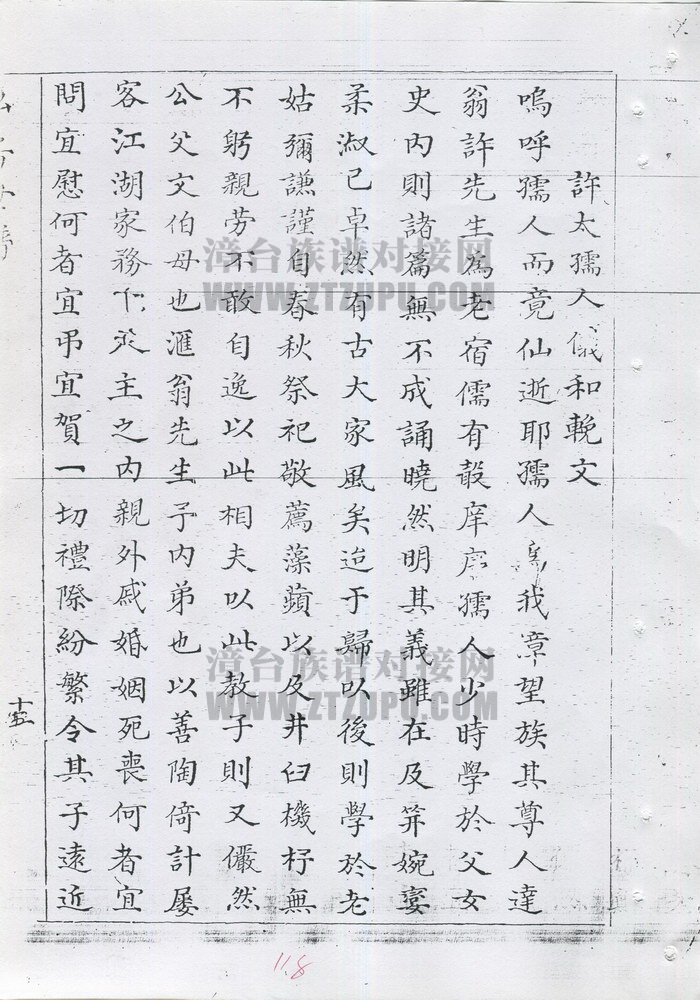 許太孺人儀和輓文
嗚呼孺人而竟仙逝耶孺人為我漳望族其尊人達
翁許先生為老宿儒有聲庠序孺人少時學於父女
史內則諸篇無不成誦曉然明其義雖在及笄婉娈
柔淑已卓然有古大家風矣迨于歸以後則學於老
姑彌謙謹自春秋祭祀敬薦藻蘋以及井臼機杼無
不躬親勞不敢自逸以此相夫以此教子則又儼然
公父文伯母也滙翁先生予內弟也以善陶倚計屡
客江湖家務 主之內親外戚婚姻死喪何者宜
問宜慰何者宜弔宜賀一切禮際紛繁令其子遠近
十五
118
漳台族谱对接网
WWW.ZTZUPU.COM
漳台族谱对接网
WWW.ZTZUPU.COM